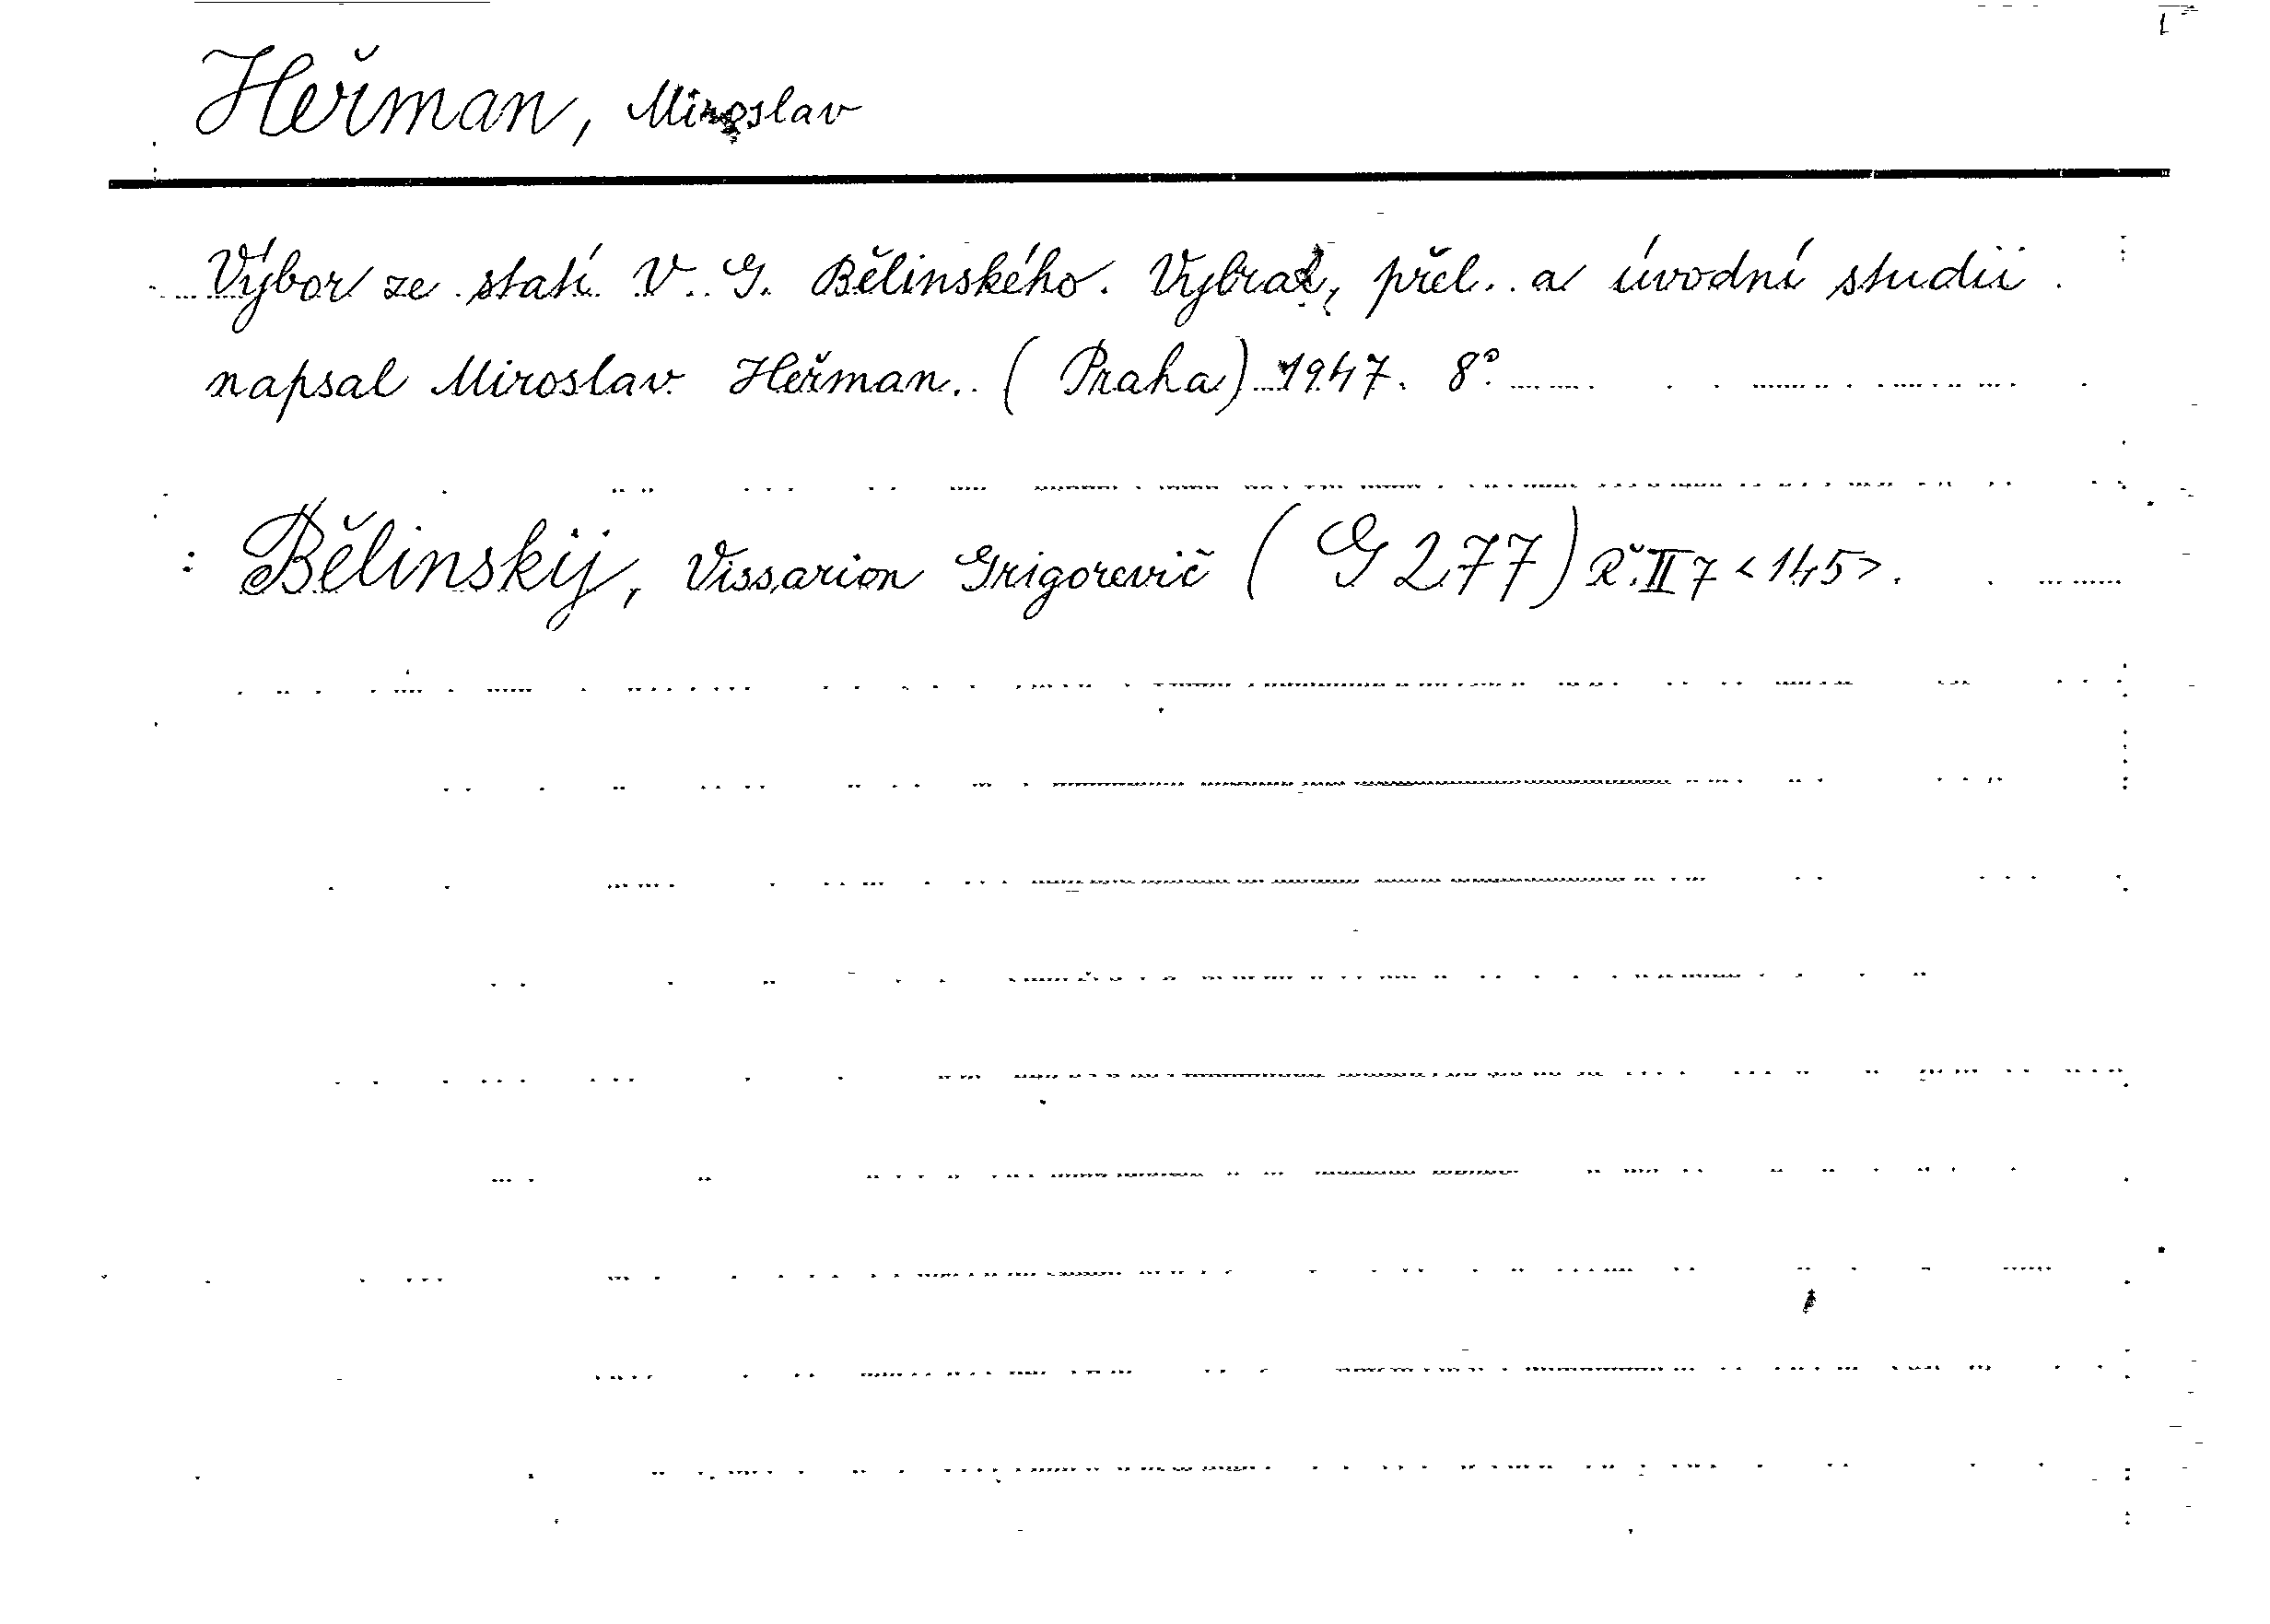 Heřman, Miroslav
Výbor ze statí V. G. Bělinského. Vybral, přel. a úvodní studii
napsal Miroslav Heřman. (Praha) 1947. 8°.
: Bělinskij, Vissarion Grigorevič (G 277) Ř. II 7 <145>.